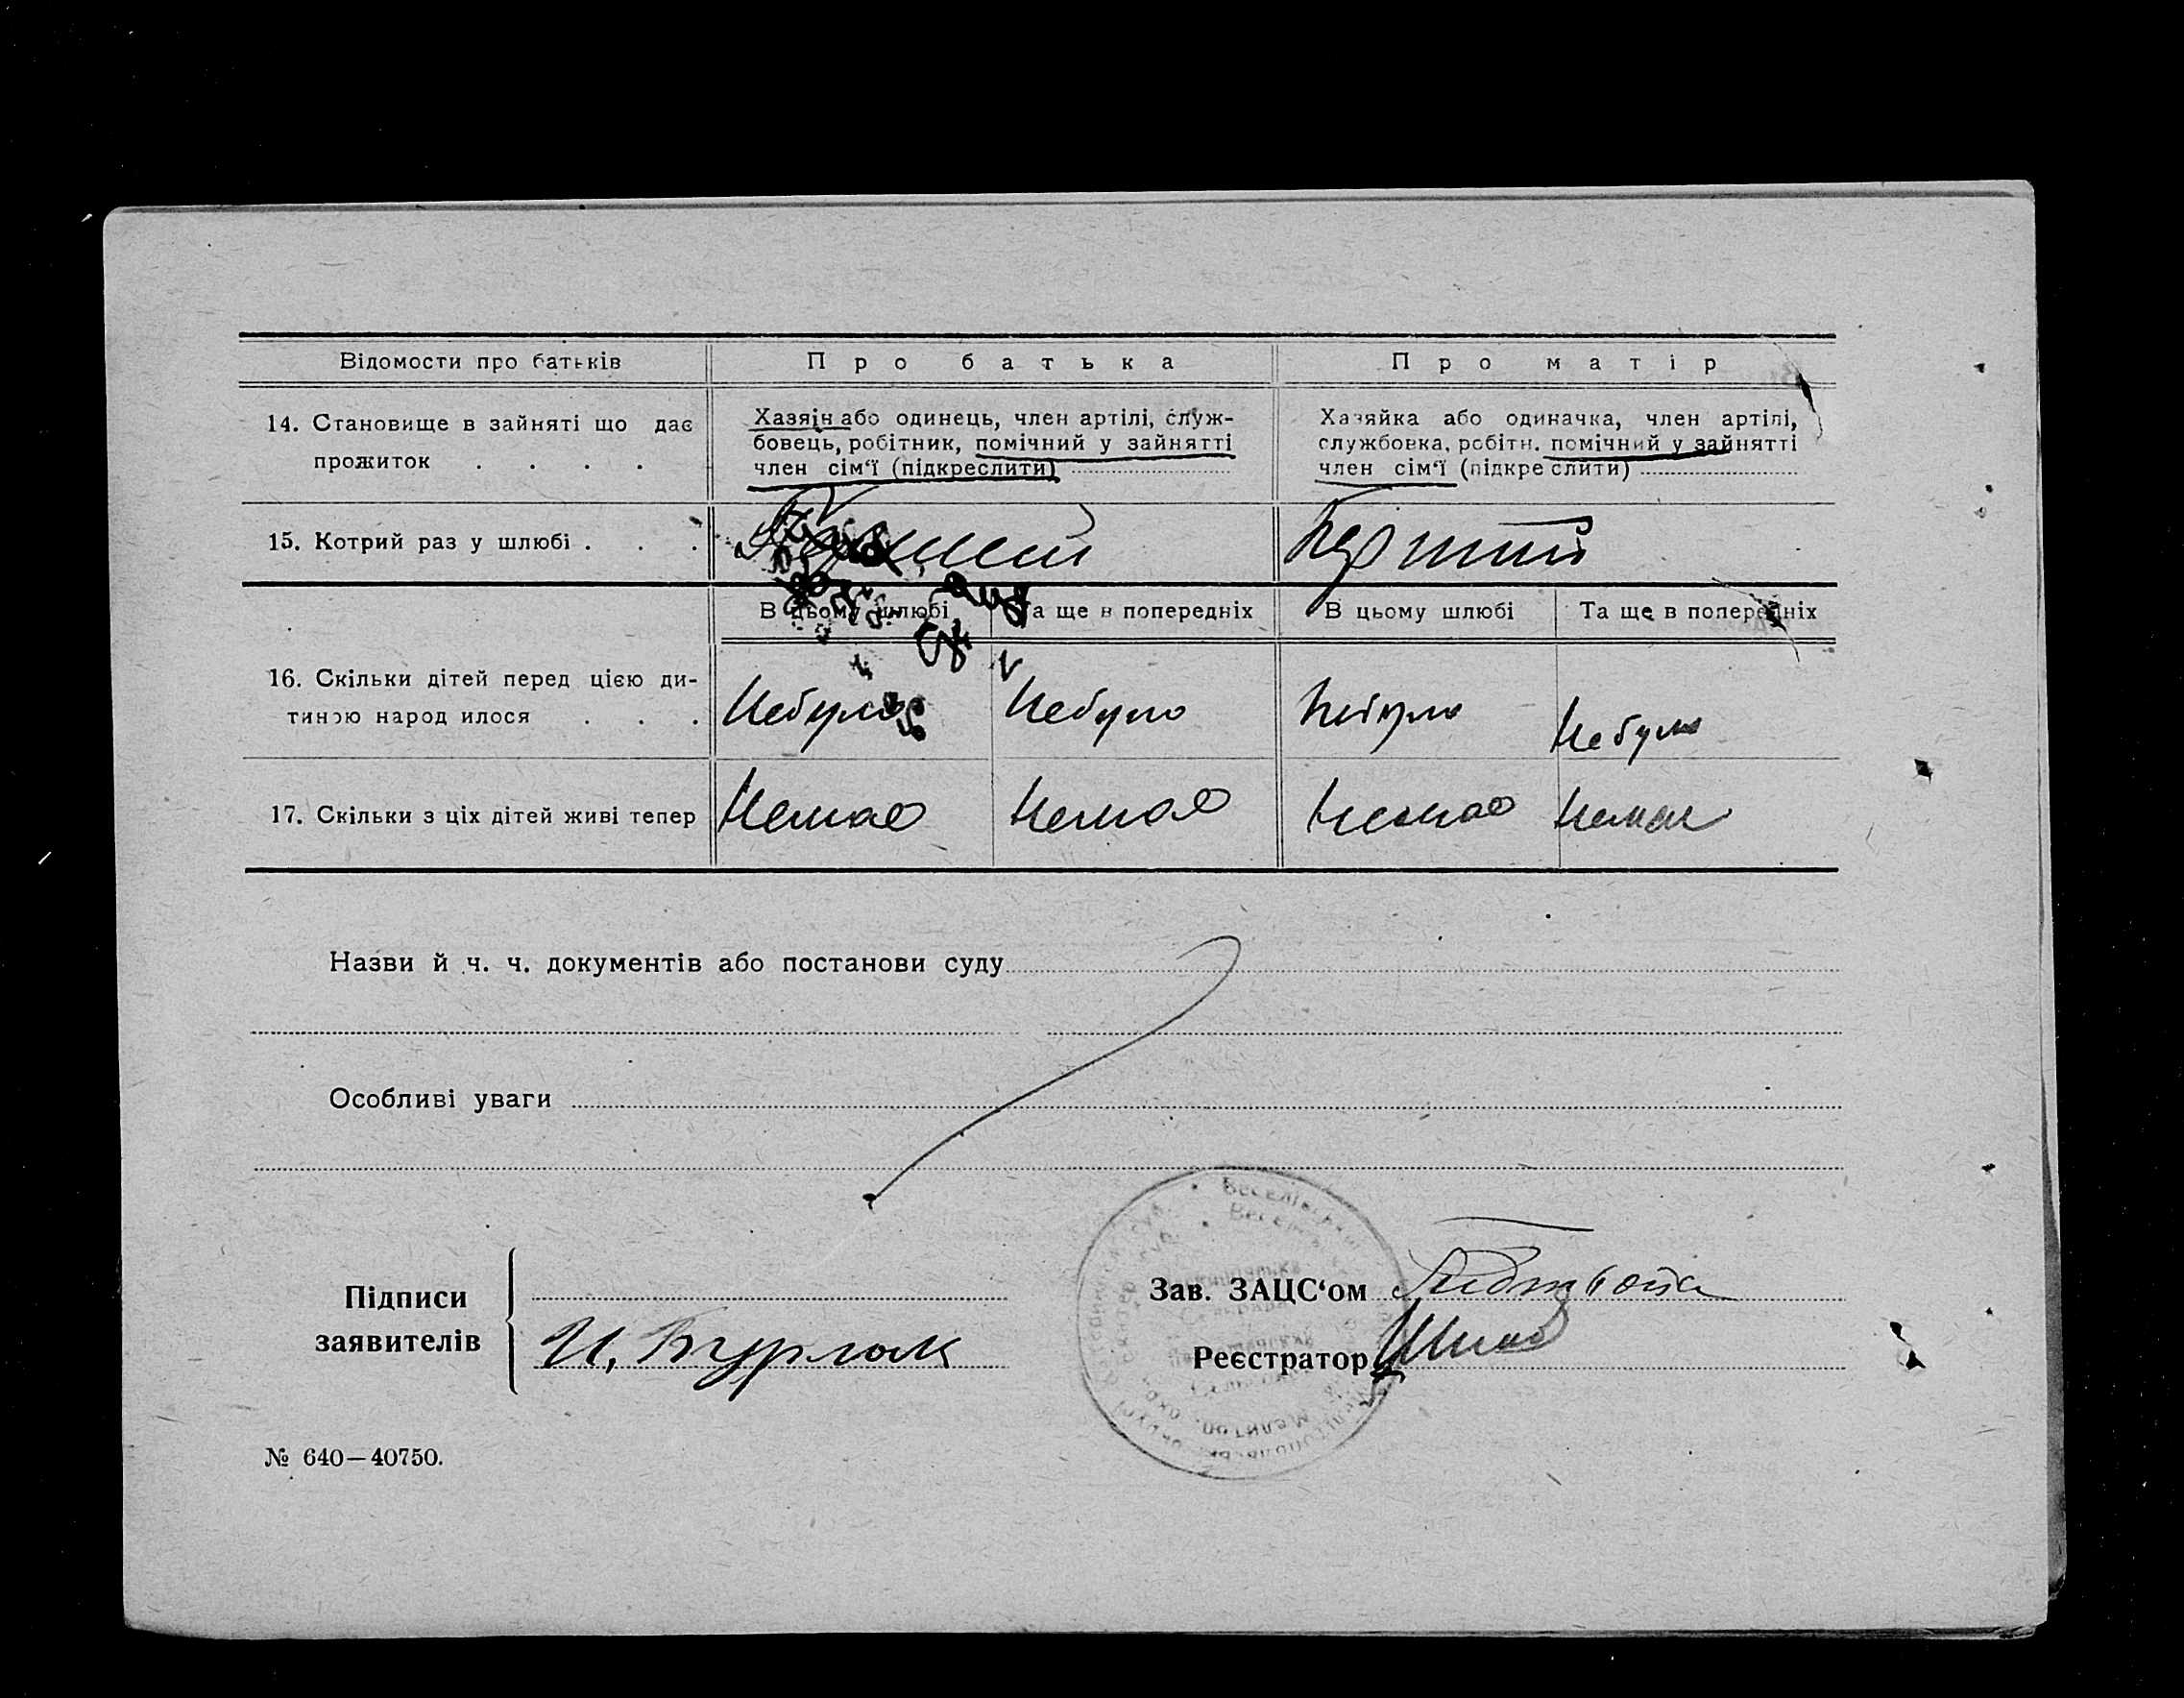 Відомости про батьків
Про батька
Про матір
14. Становище в зайняті що дає
прожиток . . . .
Хазяїн або одинець, член артілі, служ-
бовець, робітник, помічний у зайнятті
член сім‘ї (підкреслити)
Хазяйка або одиначка, член артілі,
службовка, робітн. помічний у зайнятті
член сім‘ї (підкреслити)
15. Котрий раз у шлюбі . . .
Перший
В цьому шлюбі
Та ще в попередніх
В цьому шлюбі
Та ще в попередніх
16. Скільки дітей перед цією ди-
тиною народилося . . .
Небуло
Небуло
Небуло
Небуло
17. Скільки з ціх дітей живі тепер
Немає
Немає
Немає
Немає
Назви й ч. ч. документів або постанови суду
Особливі уваги
Підписи
заявителів
И. Бурлак
Зав. ЗАЦС‘ом
Реєстратор
№ 640—40750.